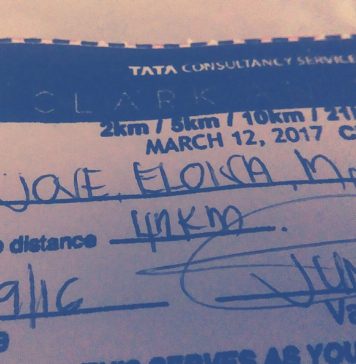 TATA CONSULTANCY SERVICE
CLARK
2km / 5km / 10km / 21
MARCH 12, 2017 C
JOVE, ELOISA, M
distance 42KM.
9/16 JUN
Va
THIS SERVES AS YOU